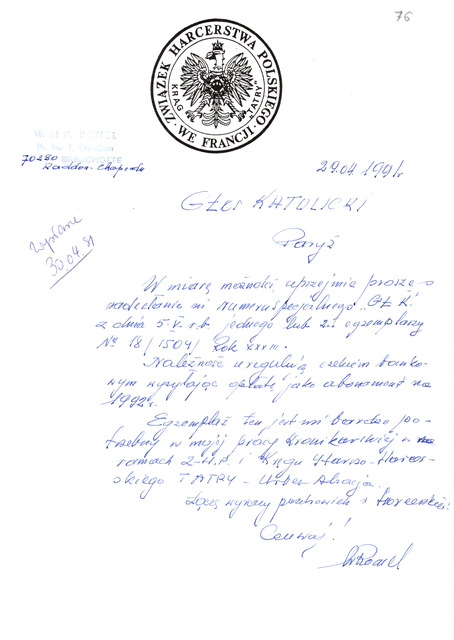 76
ZWIĄZEK HARCERSTWA POLSKIEGO
· WE FRANCJI ·
KRĄG "TATRY"
70280
Raddon-Chapendu
29.04.1991r
GŁOS KATOLICKI
Paryż
Wysłane
30.04.91
W miarę możności, uprzejmie proszę o
nadesłanie mi numeru specjalnego „GŁ. K."
z dnia 5-V. r.b. jednego lub 2.. egzemplarzy
No 18 /1504/ Rok XXXIII.
Należność ureguluję czekiem banko-
wym wysyłając opłatę jako abonament na
1992r.
Egzemplaż ten jest mi bardzo po-
trzebny w mojej pracy kronikarskiej w
ramach Z-H.P. i Kręgu Starszo-Harcer-
skiego TATRY -
Łączę wyrazy pozdrowień
Czuwaj!